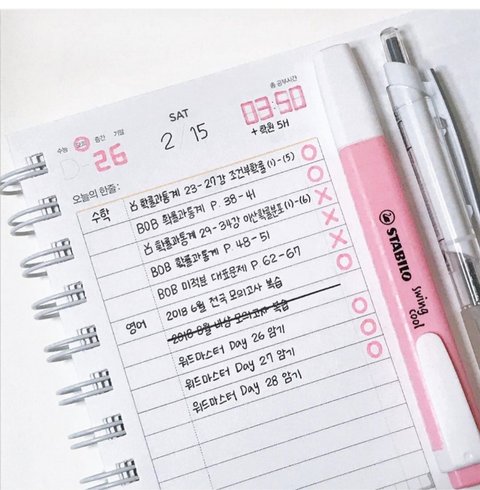 수능 모의 중간 기말
SAT
총 공부시간
D-26
2/15
03:50
+ 학원 5H
오늘의 한줄:
수학
인 확률과통계 23-27강 조건부확률 (1)-(5) O
BOB 확률과통계 P. 38-41 O
인 확률과통계 29-34강 이산확률분포 (1)-(6) X
BOB 확률과통계 P 48-51 X
BOB 미적분 대표문제 P 62-67 O
영어
2018 6월 전국 모의고사 복습
2018 8월 대성 모의고사 복습
워드마스터 Day 26 암기 O
워드마스터 Day 27 암기 O
워드마스터 Day 28 암기 O
STABILO
swing
cool